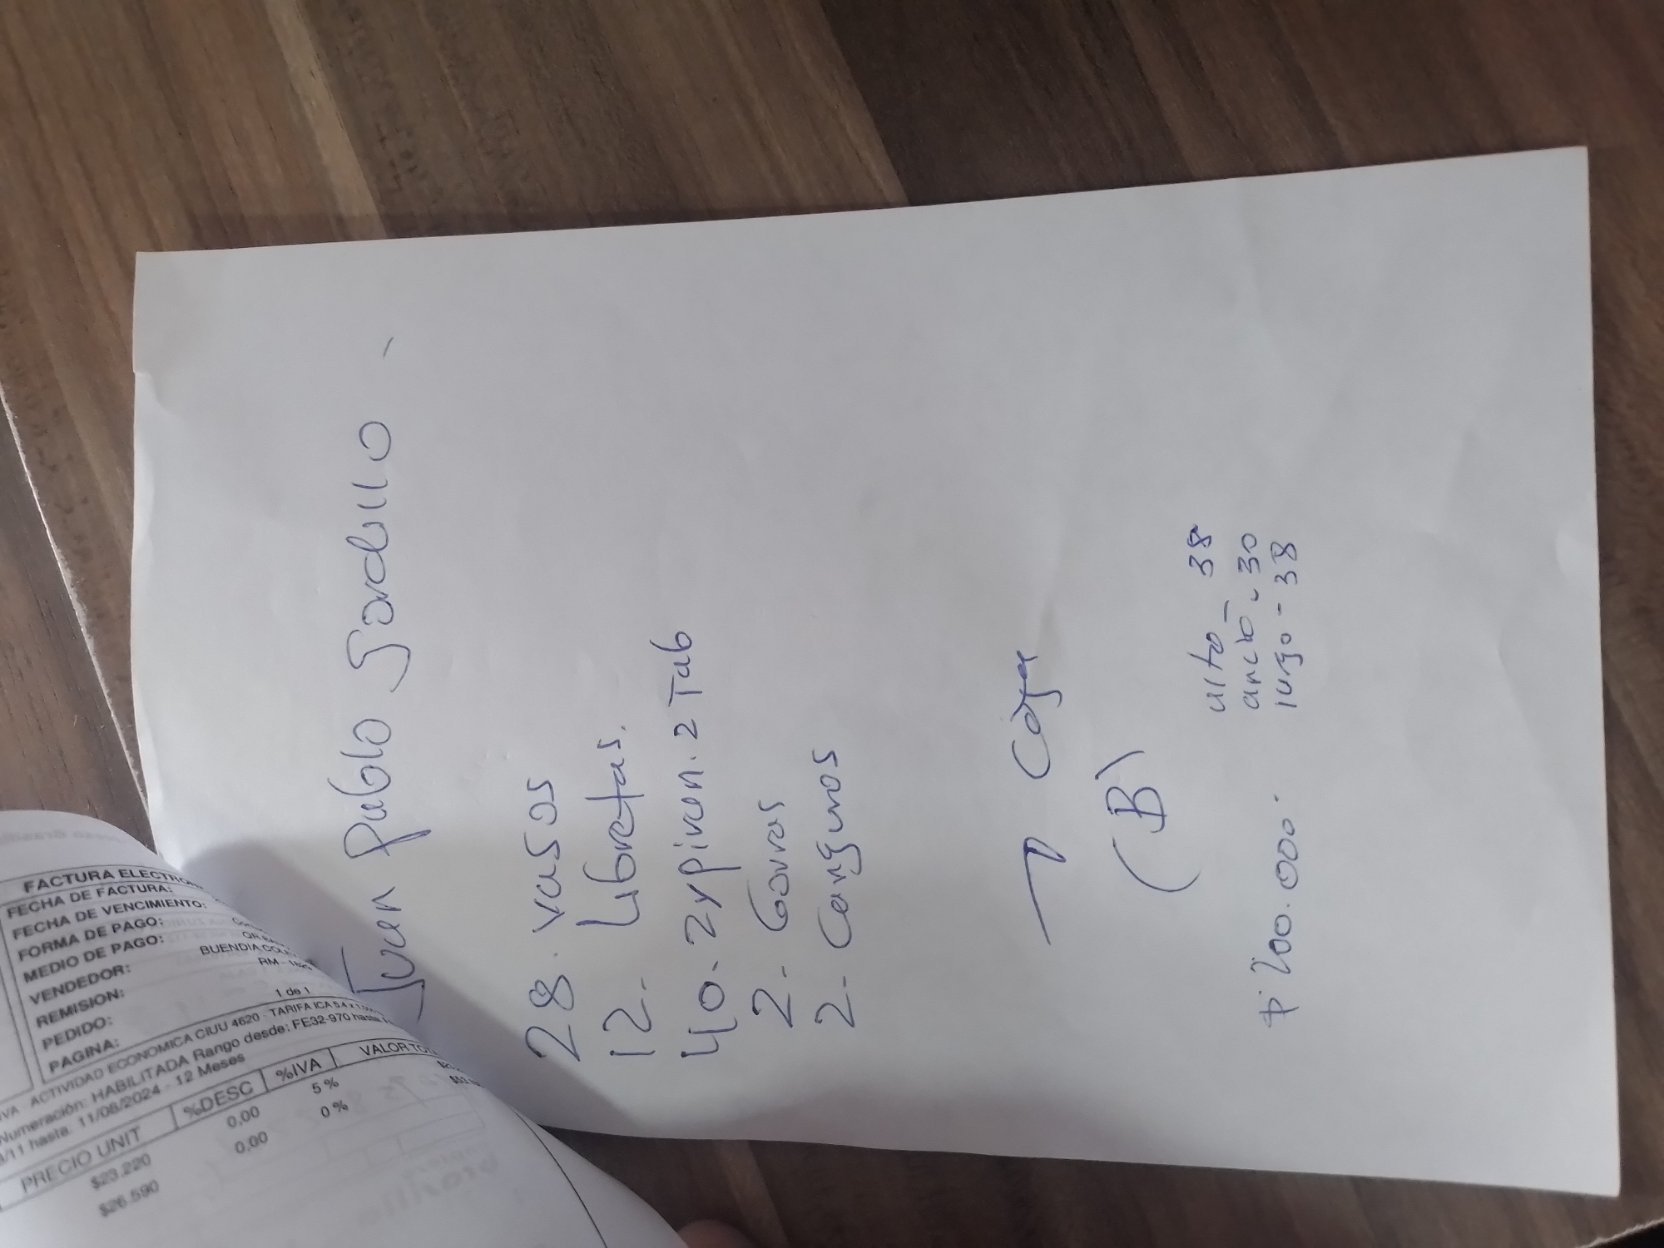 Juan Pablo Jordillo -
28. vasos
12. libretas.
40. Zypiron. 2 Tab
2- Gorras
2- Canguros
→ Caja
(B)
alto - 38
ancho - 30
largo - 38
$ 200.000.
FACTURA ELECTR
FECHA DE FACTURA:
FECHA DE VENCIMIENTO:
FORMA DE PAGO:
MEDIO DE PAGO:
VENDEDOR: BUENDIA
REMISION: RM -
PEDIDO:
PAGINA: 1 de 1
IVA ACTIVIDAD ECONOMICA CIUU 4620 - TARIFA ICA
Numeración: HABILITADA Rango desde: FE32-970
/11 hasta. 11/08/2024 - 12 Meses
PRECIO UNIT %DESC %IVA VALOR TO
$23.220 0,00 5 %
$26.590 0,00 0 %